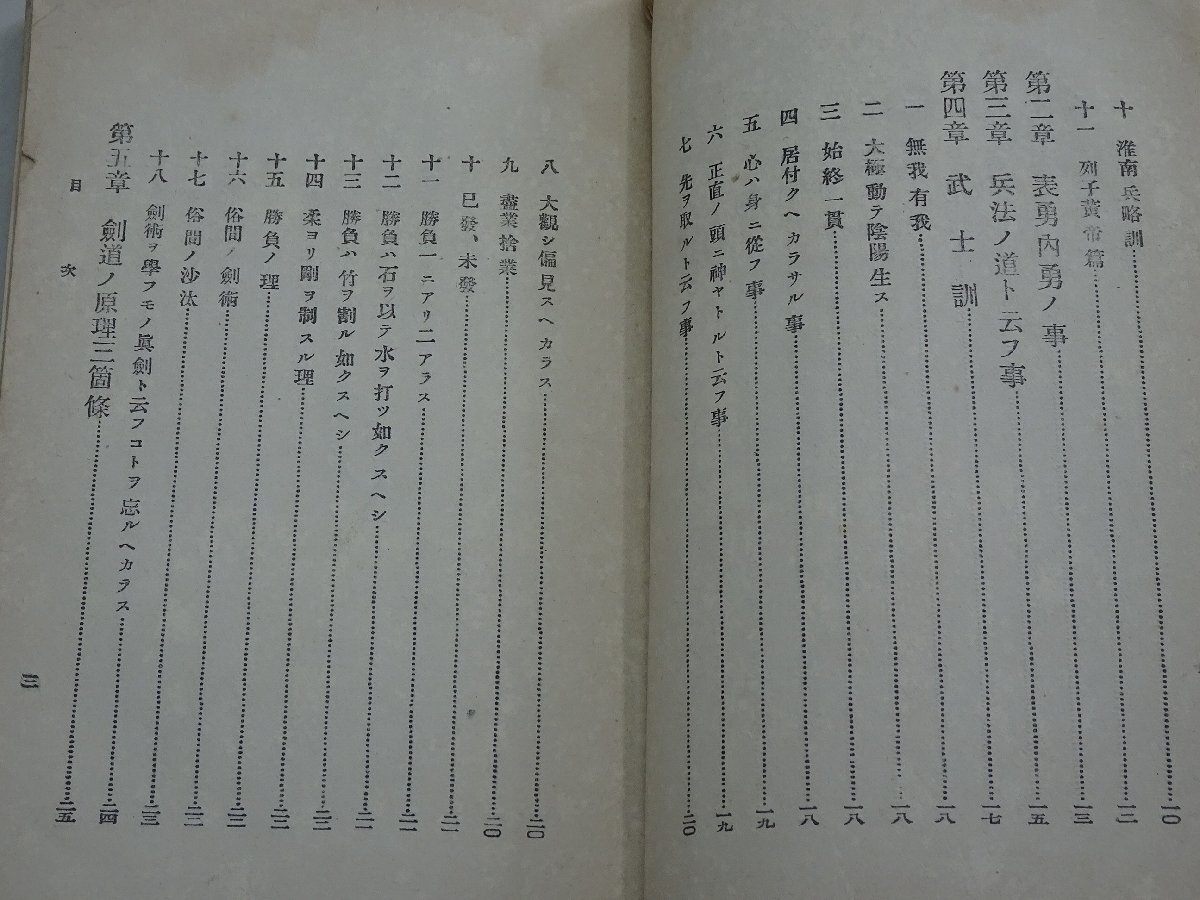 十 淮南兵略訓……一〇
十一 列子黃帝篇……一二
第二章 表勇內勇ノ事……一三
第三章 兵法ノ道ト云フ事……一五
第四章 武士訓……一七
一 無我有我……一八
二 大極動テ陰陽生ス……一八
三 始終一貫……一八
四 居付クヘカラサル事……一八
五 心ハ身ニ從フ事……一九
六 正直ノ頭ニ神ヤトルト云フ事……一九
七 先ヲ取ルト云フ事……二〇
八 大觀シ偏見スヘカラス……二〇
九 業捨業……二〇
十 已發、未發……二一
十一 勝負一ニアリ二アラス……二一
十二 勝負ハ石ヲ以テ水ヲ打ツ如クスヘシ……二一
十三 勝負ハ竹ヲ割ル如クスヘシ……二二
十四 柔ヨリ剛ヲ制スル理……二二
十五 勝負ノ理……二二
十六 俗間ノ劍術……二二
十七 俗間ノ沙汰……二三
十八 劍術ヲ學フモノ眞劍ト云フコトヲ忘ルヘカラス……二四
第五章 劍道ノ原理三箇條……二五
目次
三